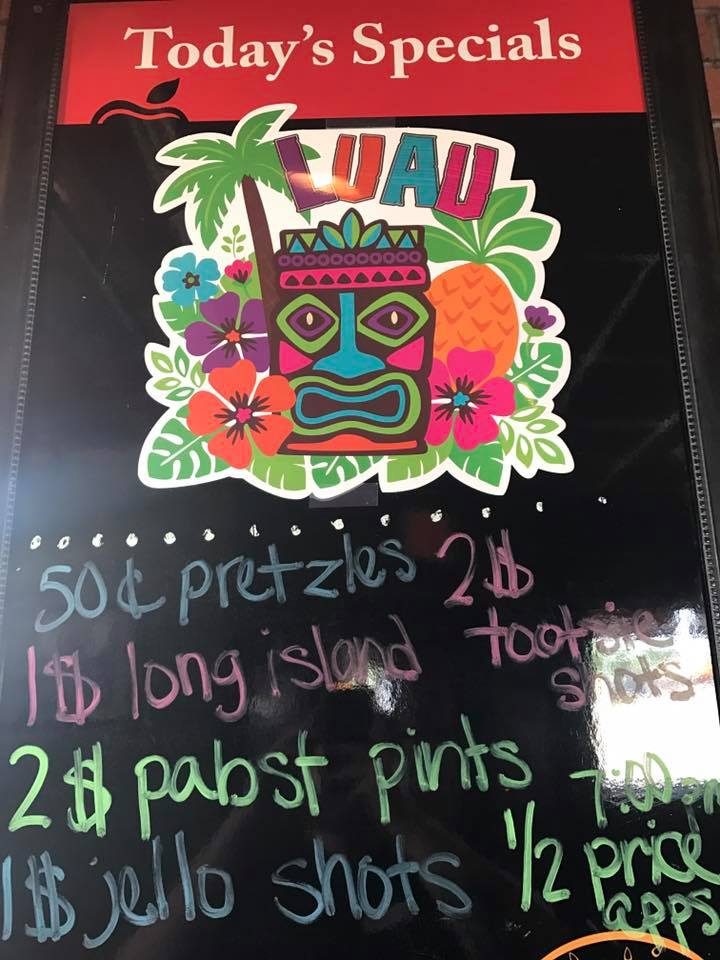 Today's Specials
LUAU
50¢ pretzles
1$ long island
2$ pabst pints
1$ jello shots
2$
tootsie
shots
7:00pm
1/2 price
apps